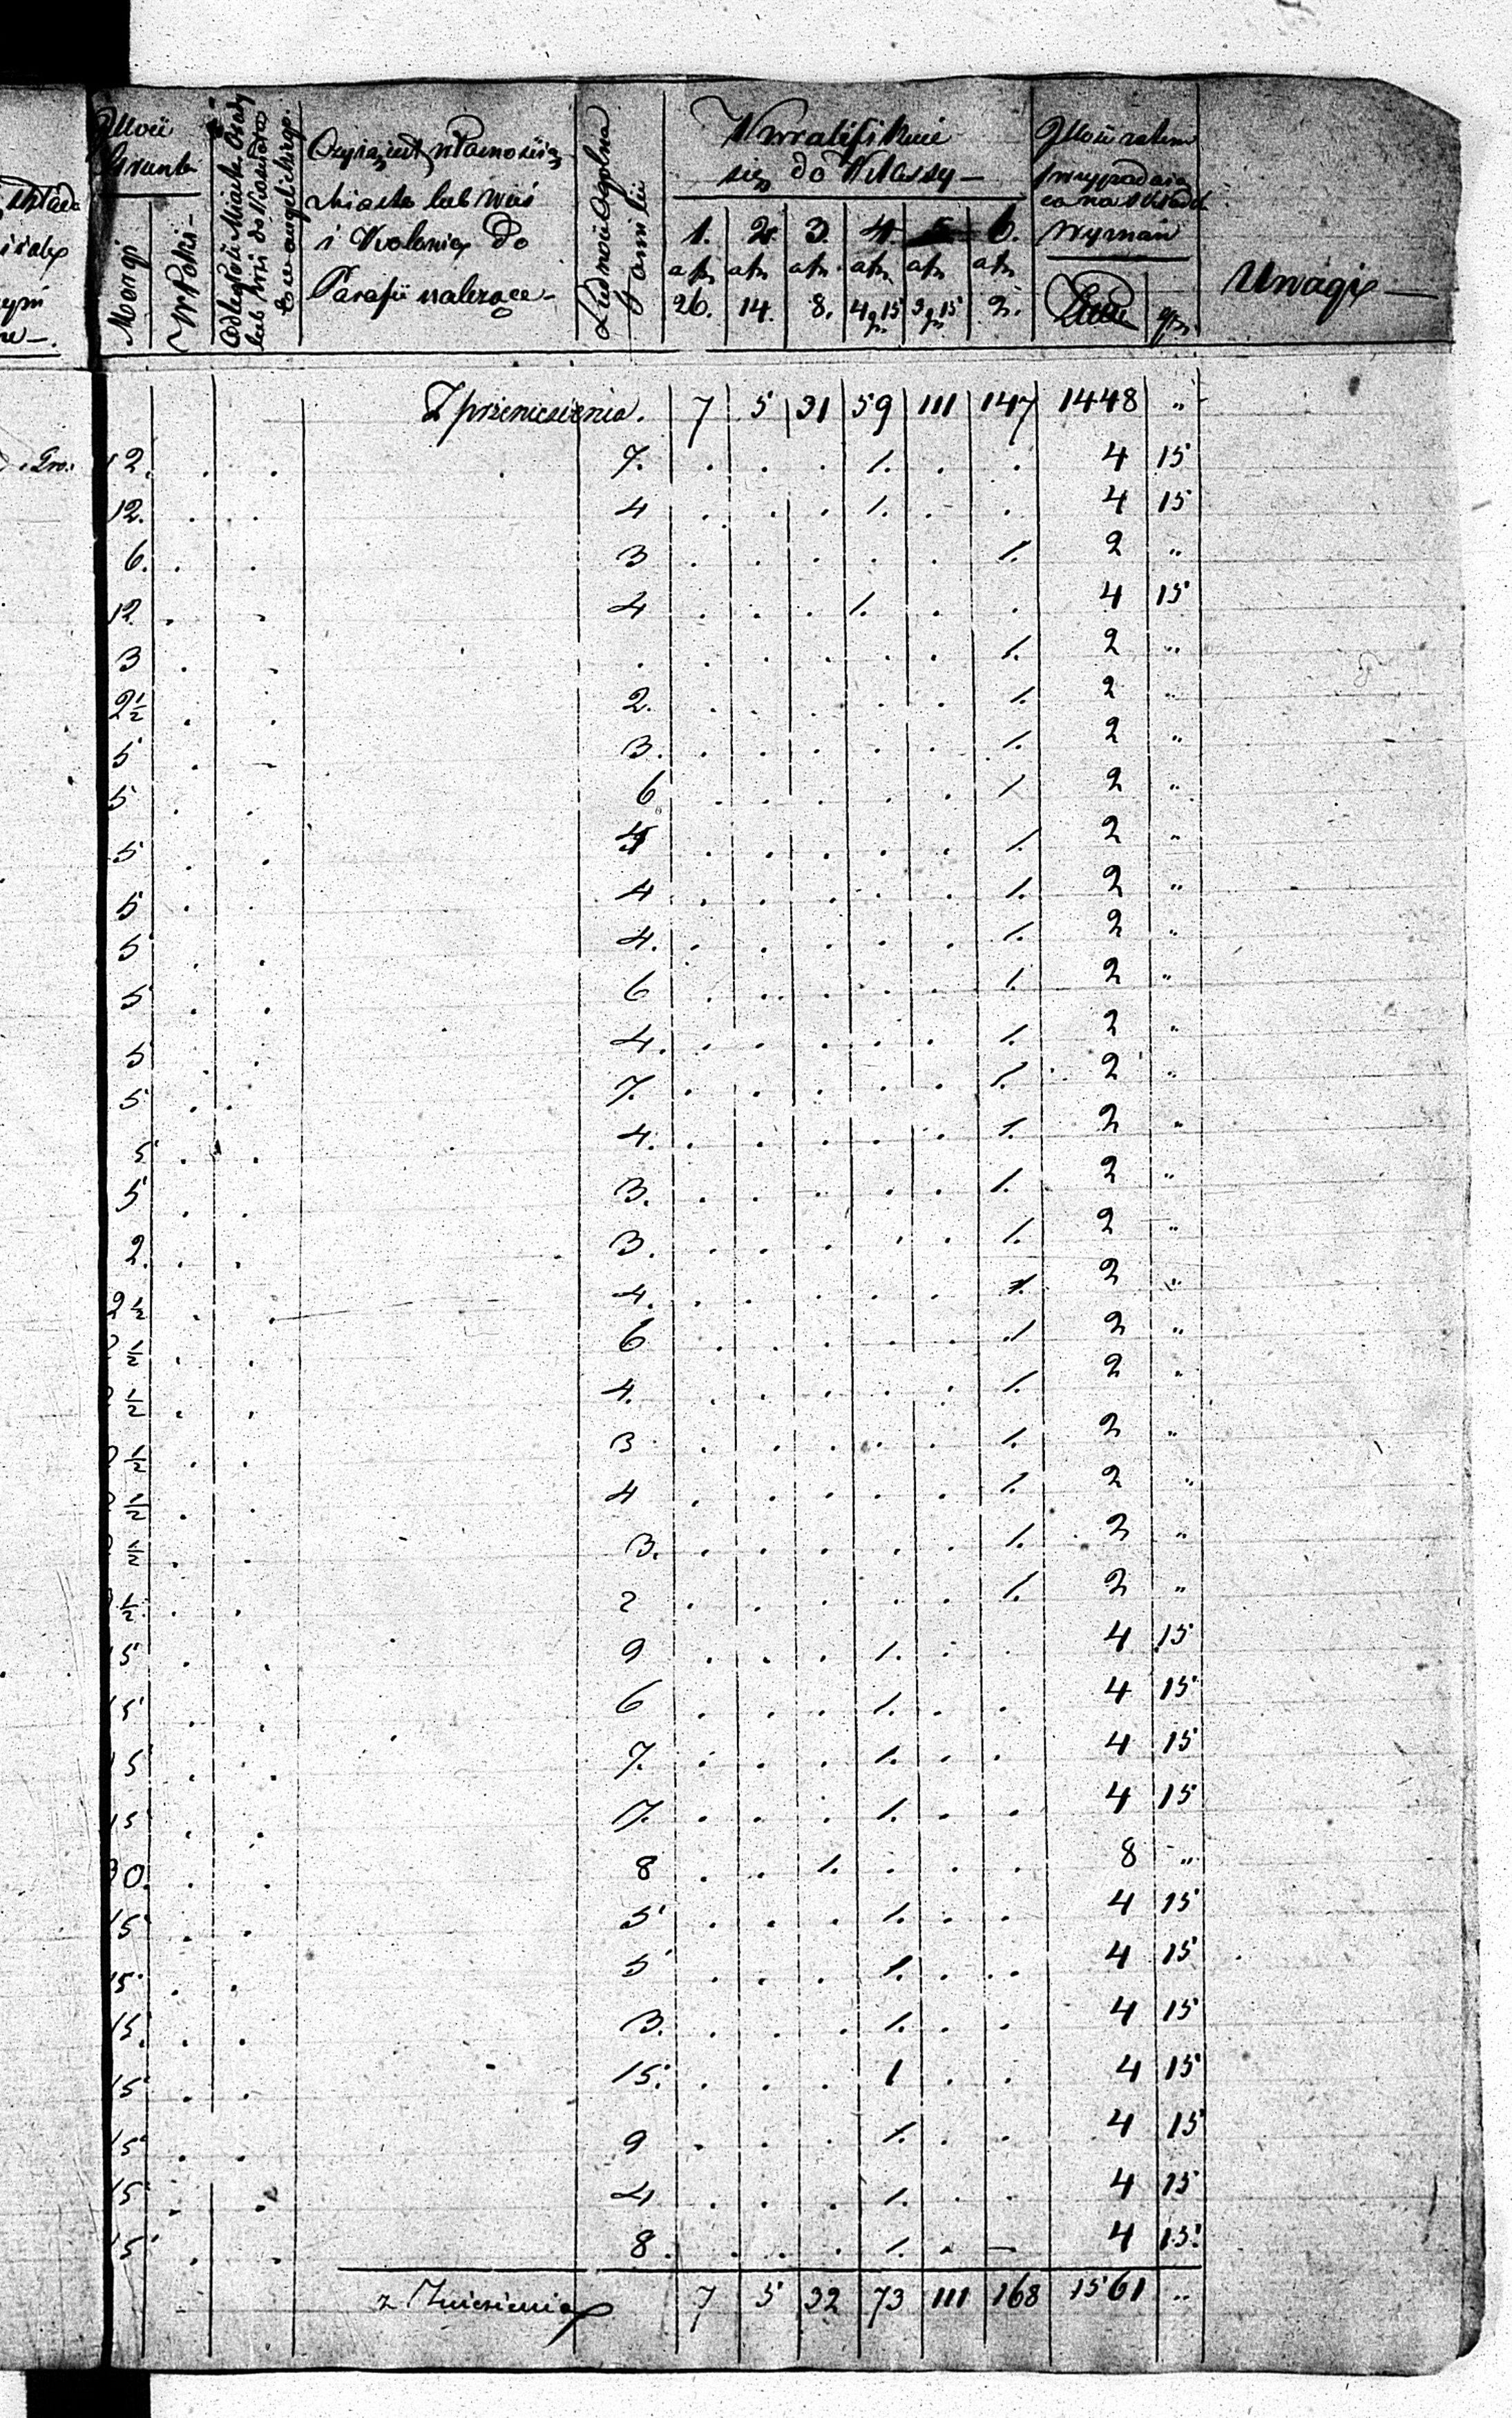 Grunta
Morgi
w Polski
Odległość Miasta Osady lub wsi do Kościoła Ewangelickiego.
Czyją jest własnością
Miasta lub wieś
i Kolonia do
Parafii należące
Ludność Ogólna familii
Kwalifikuie
się do Klassy
1. 2. 3. 4. 5. 6.
26. 14. 8. 4 g 15 3 g 15 2.
Ilość zatem
wypadaią
Uwagi
Z przeniesienia. 7 5 31 59 111 147 1448 "
12. 7. 1. 4 15
12. 4 1. 4 15
6. 3 1. 2 "
12 4 1. 4 15
3 1. 2 "
2½ 2. 1. 2 "
5 3. 1. 2 "
5 6 1 2 "
5 1. 2 "
5 4 1. 2 "
5 4. 1. 2 "
5 6 1. 2 "
5 4. 1. 2 "
5 7. 1. 2 "
5 4. 1. 2 "
5 3. 1. 2 "
2. 3. 1. 2 "
2½ 4. 1. 2 "
½ 6 1 2 "
½ 4. 1. 2 "
½ 3 1. 2 "
½ 4 1. 2 "
½ 3. 1. 2 "
½ 2 1. 2 "
15 9 1. 4 15
15 6 1. 4 15
15 7. 1. 4 15
15 7. 1. 4 15
30. 8 1. 8 "
15 5 1. 4 15
15 5 1. 4 15
15. 3. 1. 4 15
15 15. 1 4 15
15 9 1. 4 15
15 4 1. 4 15
15 8. 1. 4 15
z Zniesienia 7 5 32 73 111 168 1561 "